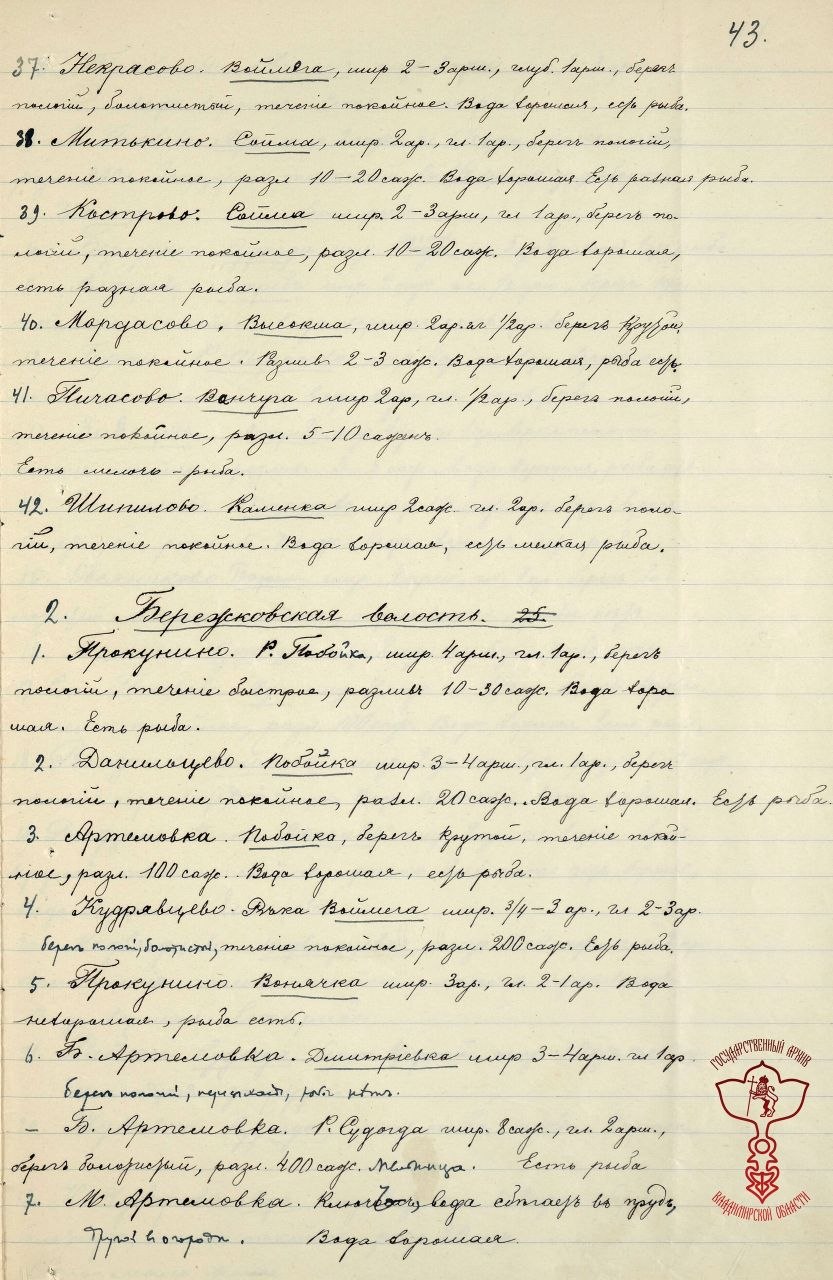 43.
37. Некрасово. Воймега, шир 2–3 арш., глуб. 1 арш., берегъ
пологій, болотистый, теченіе покойное. Вода хорошая, есть рыба.
38. Митькино. Сойма, шир. 2 ар., гл. 1 ар., берегъ пологій,
теченіе покойное, разл 10–20 саж. Вода хорошая Есть разная рыба.
39. Кострово. Сойма шир. 2–3 арш, гл 1 ар., берегъ по-
логій, теченіе покойное, разл. 10–20 саж. Вода хорошая,
есть разная рыба.
40. Мордасово. Высокша, шир. 2 ар. гл 1/2 ар. берегъ крутой,
теченіе покойное. Разливъ 2–3 саж. Вода хорошая, рыба есть.
41. Пичасово. Вончуга шир 2 ар, гл. 1/2 ар., берегъ пологій,
теченіе покойное, разл. 5–10 саженъ.
Есть мелочь – рыба.
42. Шипилово. Каменка шир 2 саж. гл. 2 ар. берегъ поло-
гій, теченіе покойное. Вода хорошая, есть мелкая рыба.
2. Бережковская волость. 25.
1. Прокунино. Р. Побойка, шир. 4 арш., гл. 1 ар., берегъ
пологій, теченіе быстрое, разливъ 10–30 саж. Вода хоро
шая. Есть рыба.
2. Данильцево. Побойка шир. 3–4 арш., гл. 1 ар., берегъ
пологій, теченіе покойное, разл. 20 саж. Вода хорошая. Есть рыба.
3. Артемовка. Побойка, берегъ крутой, теченіе покой-
ное, разл. 100 саж. Вода хорошая, есть рыба.
4. Кудрявцево. Рѣка Воймега шир. 3/4–3 ар., гл 2–3 ар.
берегъ пологій, болотистый, теченіе покойное, разл. 200 саж. Есть рыба.
5. Прокунино. Вонячка шир. 3 ар., гл. 2–1 ар. Вода
нехорошая, рыба есть.
6. Б. Артемовка. Дмитріевка шир 3–4 арш. гл 1 ар.
берегъ пологій, рыбы нѣтъ.
– Б. Артемовка. Р. Судогда шир. 8 саж., гл. 2 арш.,
берегъ болотистый, разл. 400 саж. Мельница. Есть рыба
7. М. Артемовка. Ключ вода сбѣгаетъ въ прудъ,
Другой в огороды. Вода хорошая.
ГОСУДАРСТВЕННЫЙ АРХИВ
ВЛАДИМИРСКОЙ ОБЛАСТИ